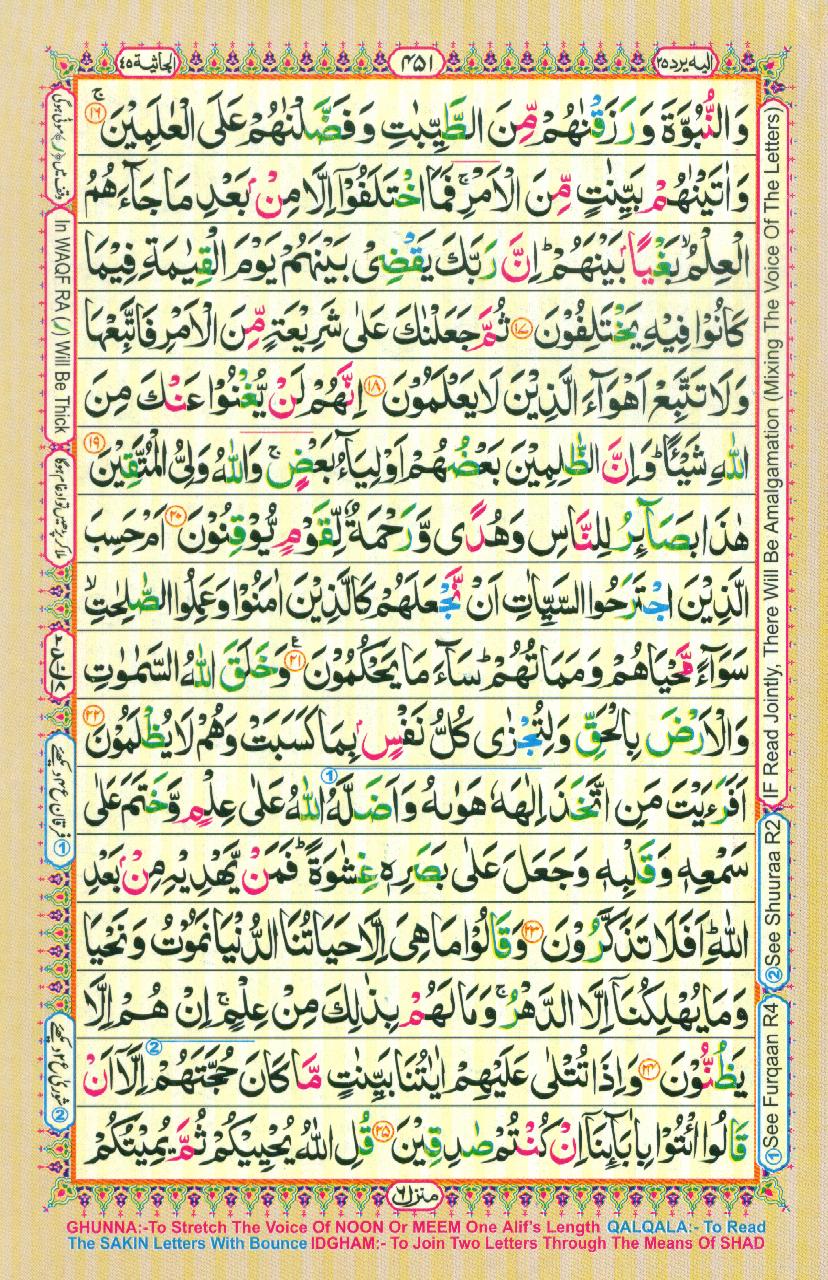 اليه يرد ٢٥
۴۵۱
الجاثية ٤٥
وَالنُّبُوَّةَ وَرَزَقْنٰهُمْ مِّنَ الطَّيِّبٰتِ وَفَضَّلْنٰهُمْ عَلَى الْعٰلَمِيْنَ ۚ ﴿١٦﴾
وَاٰتَيْنٰهُمْ بَيِّنٰتٍ مِّنَ الْاَمْرِ ۚ فَمَا اخْتَلَفُوْٓا اِلَّا مِنْۢ بَعْدِ مَا جَآءَهُمُ
الْعِلْمُ ۙ بَغْيًاۢ بَيْنَهُمْ ؕ اِنَّ رَبَّكَ يَقْضِىْ بَيْنَهُمْ يَوْمَ الْقِيٰمَةِ فِيْمَا
كَانُوْا فِيْهِ يَخْتَلِفُوْنَ ﴿١٧﴾ ثُمَّ جَعَلْنٰكَ عَلٰى شَرِيْعَةٍ مِّنَ الْاَمْرِ فَاتَّبِعْهَا
وَلَا تَتَّبِعْ اَهْوَآءَ الَّذِيْنَ لَا يَعْلَمُوْنَ ﴿١٨﴾ اِنَّهُمْ لَنْ يُّغْنُوْا عَنْكَ مِنَ
اللّٰهِ شَيْئًا ؕ وَاِنَّ الظّٰلِمِيْنَ بَعْضُهُمْ اَوْلِيَآءُ بَعْضٍ ۚ وَاللّٰهُ وَلِىُّ الْمُتَّقِيْنَ ﴿١٩﴾
هٰذَا بَصَآئِرُ لِلنَّاسِ وَهُدًى وَّرَحْمَةٌ لِّقَوْمٍ يُّوْقِنُوْنَ ﴿٢٠﴾ اَمْ حَسِبَ
الَّذِيْنَ اجْتَرَحُوا السَّيِّاٰتِ اَنْ نَّجْعَلَهُمْ كَالَّذِيْنَ اٰمَنُوْا وَعَمِلُوا الصّٰلِحٰتِ ۙ
سَوَآءً مَّحْيَاهُمْ وَمَمَاتُهُمْ ؕ سَآءَ مَا يَحْكُمُوْنَ ﴿٢١﴾ ع وَخَلَقَ اللّٰهُ السَّمٰوٰتِ
وَالْاَرْضَ بِالْحَقِّ وَلِتُجْزٰى كُلُّ نَفْسٍۢ بِمَا كَسَبَتْ وَهُمْ لَا يُظْلَمُوْنَ ﴿٢٢﴾
اَفَرَءَيْتَ مَنِ اتَّخَذَ اِلٰهَهٗ هَوٰىهُ وَاَضَلَّهُ اللّٰهُ عَلٰى عِلْمٍ وَّخَتَمَ عَلٰى
سَمْعِهٖ وَقَلْبِهٖ وَجَعَلَ عَلٰى بَصَرِهٖ غِشٰوَةً ؕ فَمَنْ يَّهْدِيْهِ مِنْۢ بَعْدِ
اللّٰهِ ؕ اَفَلَا تَذَكَّرُوْنَ ﴿٢٣﴾ وَقَالُوْا مَا هِىَ اِلَّا حَيَاتُنَا الدُّنْيَا نَمُوْتُ وَنَحْيَا
وَمَا يُهْلِكُنَآ اِلَّا الدَّهْرُ ۚ وَمَا لَهُمْ بِذٰلِكَ مِنْ عِلْمٍ ۚ اِنْ هُمْ اِلَّا
يَظُنُّوْنَ ﴿٢٤﴾ وَاِذَا تُتْلٰى عَلَيْهِمْ اٰيٰتُنَا بَيِّنٰتٍ مَّا كَانَ حُجَّتَهُمْ اِلَّآ اَنْ
قَالُوا ائْتُوْا بِاٰبَآئِنَآ اِنْ كُنْتُمْ صٰدِقِيْنَ ﴿٢٥﴾ قُلِ اللّٰهُ يُحْيِيْكُمْ ثُمَّ يُمِيْتُكُمْ
منزل ٦
In WAQF RA (ر) Will Be Thick
① فرقان ع ۴ دیکھئے
② شوریٰ ع ۲ دیکھئے
(IF Read Jointly, There Will Be Amalgamation (Mixing The Voice Of The Letters)
②See Shuuraa R2
①See Furqaan R4
GHUNNA:-To Stretch The Voice Of NOON Or MEEM One Alif's Length QALQALA:- To Read
The SAKIN Letters With Bounce IDGHAM:- To Join Two Letters Through The Means Of SHAD